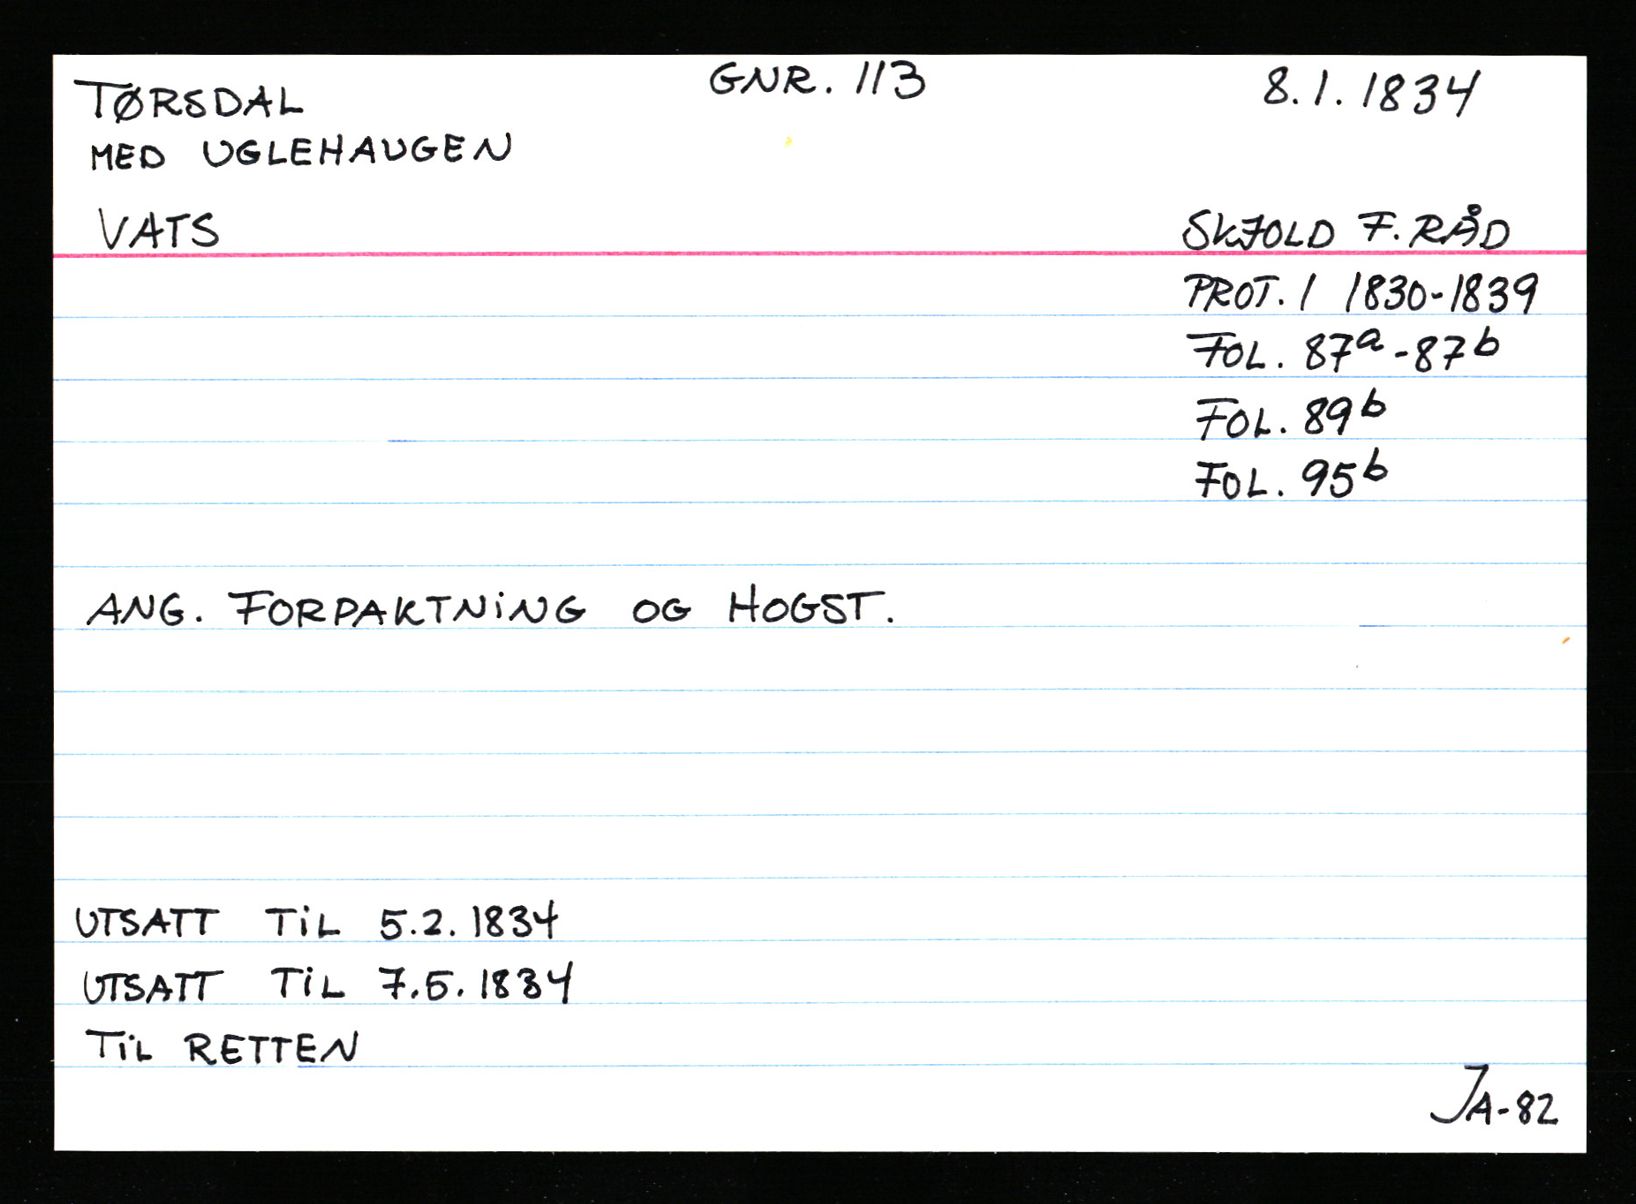 TØRSDAL GNR. 113 8.1.1834
MED UGLEHAUGEN
VATS SKJOLD F. RÅD
PROT. 1 1830-1839
FOL. 87a-87b
FOL. 89b
FOL. 95b
ANG. FORPAKTNING OG HOGST.
UTSATT TIL 5.2.1834
UTSATT TIL 7.5.1834
TIL RETTEN
JA-82